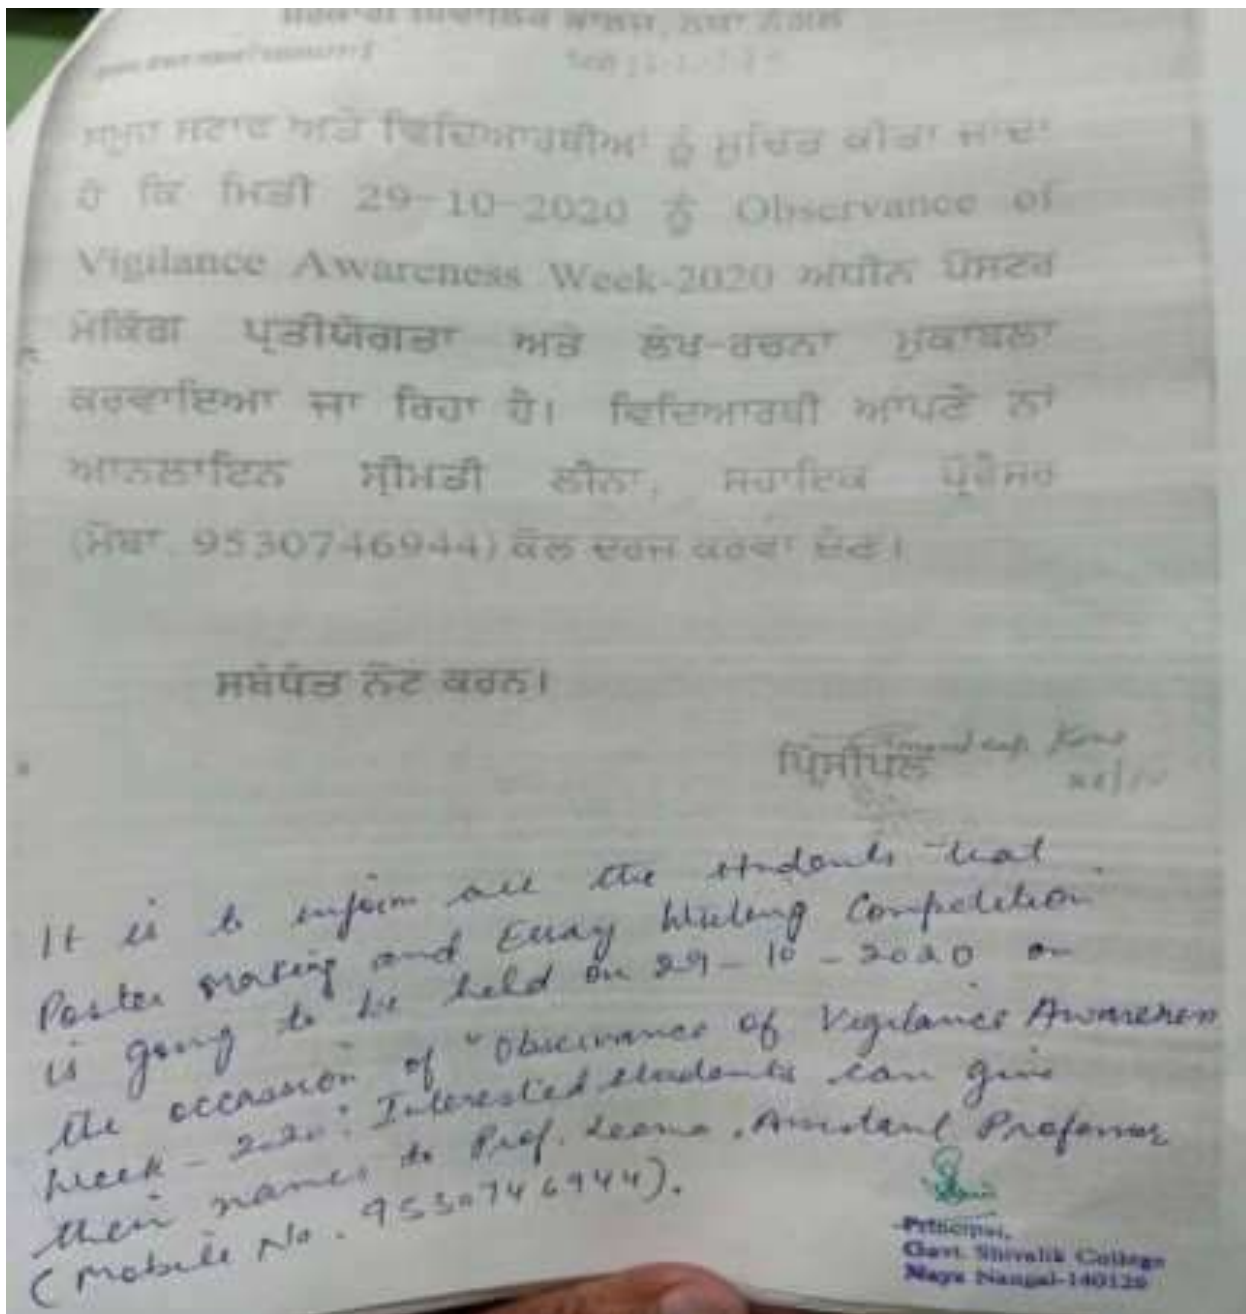 ਸਰਕਾਰੀ ਸ਼ਿਵਾਲਿਕ ਕਾਲਜ, ਨਯਾ ਨੰਗਲ
ਸਮੂਹ ਸਟਾਫ ਅਤੇ ਵਿਦਿਆਰਥੀਆਂ ਨੂੰ ਸੂਚਿਤ ਕੀਤਾ ਜਾਂਦਾ
ਹੈ ਕਿ ਮਿਤੀ 29-10-2020 ਨੂੰ Observance of
Vigilance Awareness Week-2020 ਅਧੀਨ ਪੋਸਟਰ
ਮੇਕਿੰਗ ਪ੍ਰਤੀਯੋਗਤਾ ਅਤੇ ਲੇਖ-ਰਚਨਾ ਮੁਕਾਬਲਾ
ਕਰਵਾਇਆ ਜਾ ਰਿਹਾ ਹੈ। ਵਿਦਿਆਰਥੀ ਆਪਣੇ ਨਾਂ
ਆਨਲਾਇਨ ਸ੍ਰੀਮਤੀ ਲੀਨਾ, ਸਹਾਇਕ ਪ੍ਰੋਫੈਸਰ
(ਮੋਬਾ. 9530746944) ਕੋਲ ਦਰਜ ਕਰਵਾ ਦੇਣ।
ਸਬੰਧਤ ਨੋਟ ਕਰਨ।
ਪ੍ਰਿੰਸੀਪਲ
It is to inform all the students that
Poster Making and Essay Writing Competition
is going to be held on 29-10-2020 on
the occassion of "Observance of Vigilance Awareness
Week-2020". Interested students can give
their names to Prof. Leena, Assistant Professor
(Mobile No. 9530746944).
Principal,
Govt. Shivalik College
Naya Nangal-140126